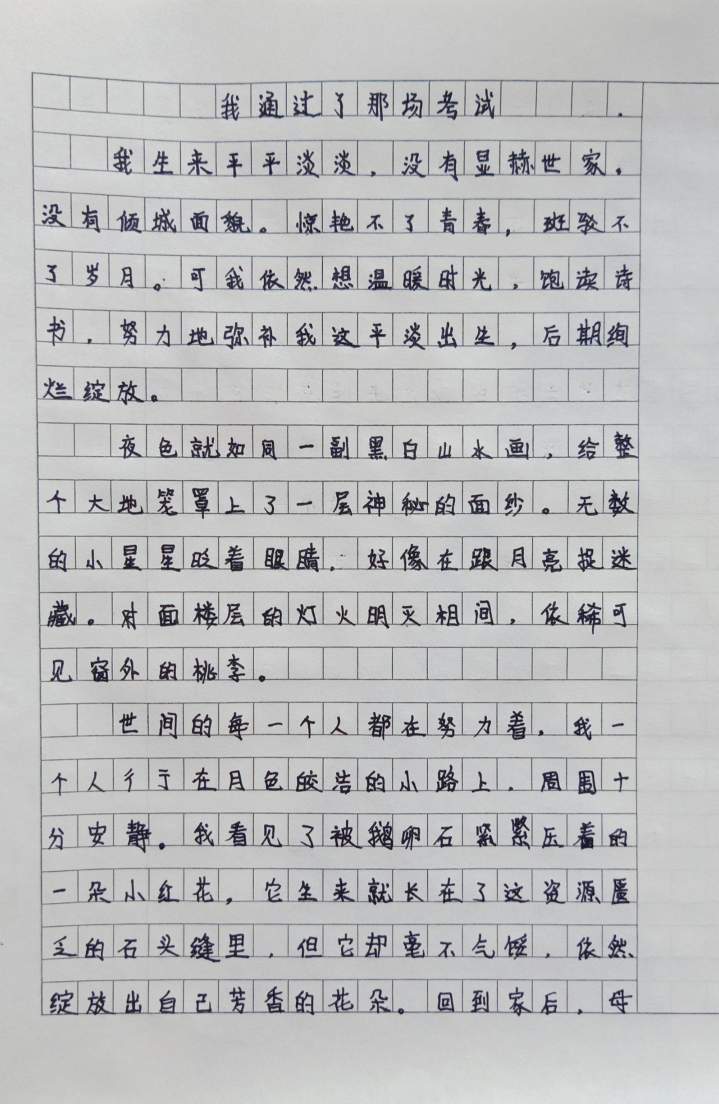 我通过了那场考试
我生来平平淡淡，没有显赫世家，
没有倾城面貌。惊艳不了青春，斑驳不
了岁月。可我依然想温暖时光，饱读诗
书，努力地弥补我这平淡出生，后期绚
烂绽放。
夜色就如同一副黑白山水画，给整
个大地笼罩上了一层神秘的面纱。无数
的小星星眨着眼睛，好像在跟月亮捉迷
藏。对面楼层的灯火明灭相间，依稀可
见窗外的桃李。
世间的每一个人都在努力着，我一
个人彳亍在月色皎洁的小路上，周围十
分安静。我看见了被鹅卵石紧紧压着的
一朵小红花，它生来就长在了这资源匮
乏的石头缝里，但它却毫不气馁，依然
绽放出自己芳香的花朵。回到家后，母